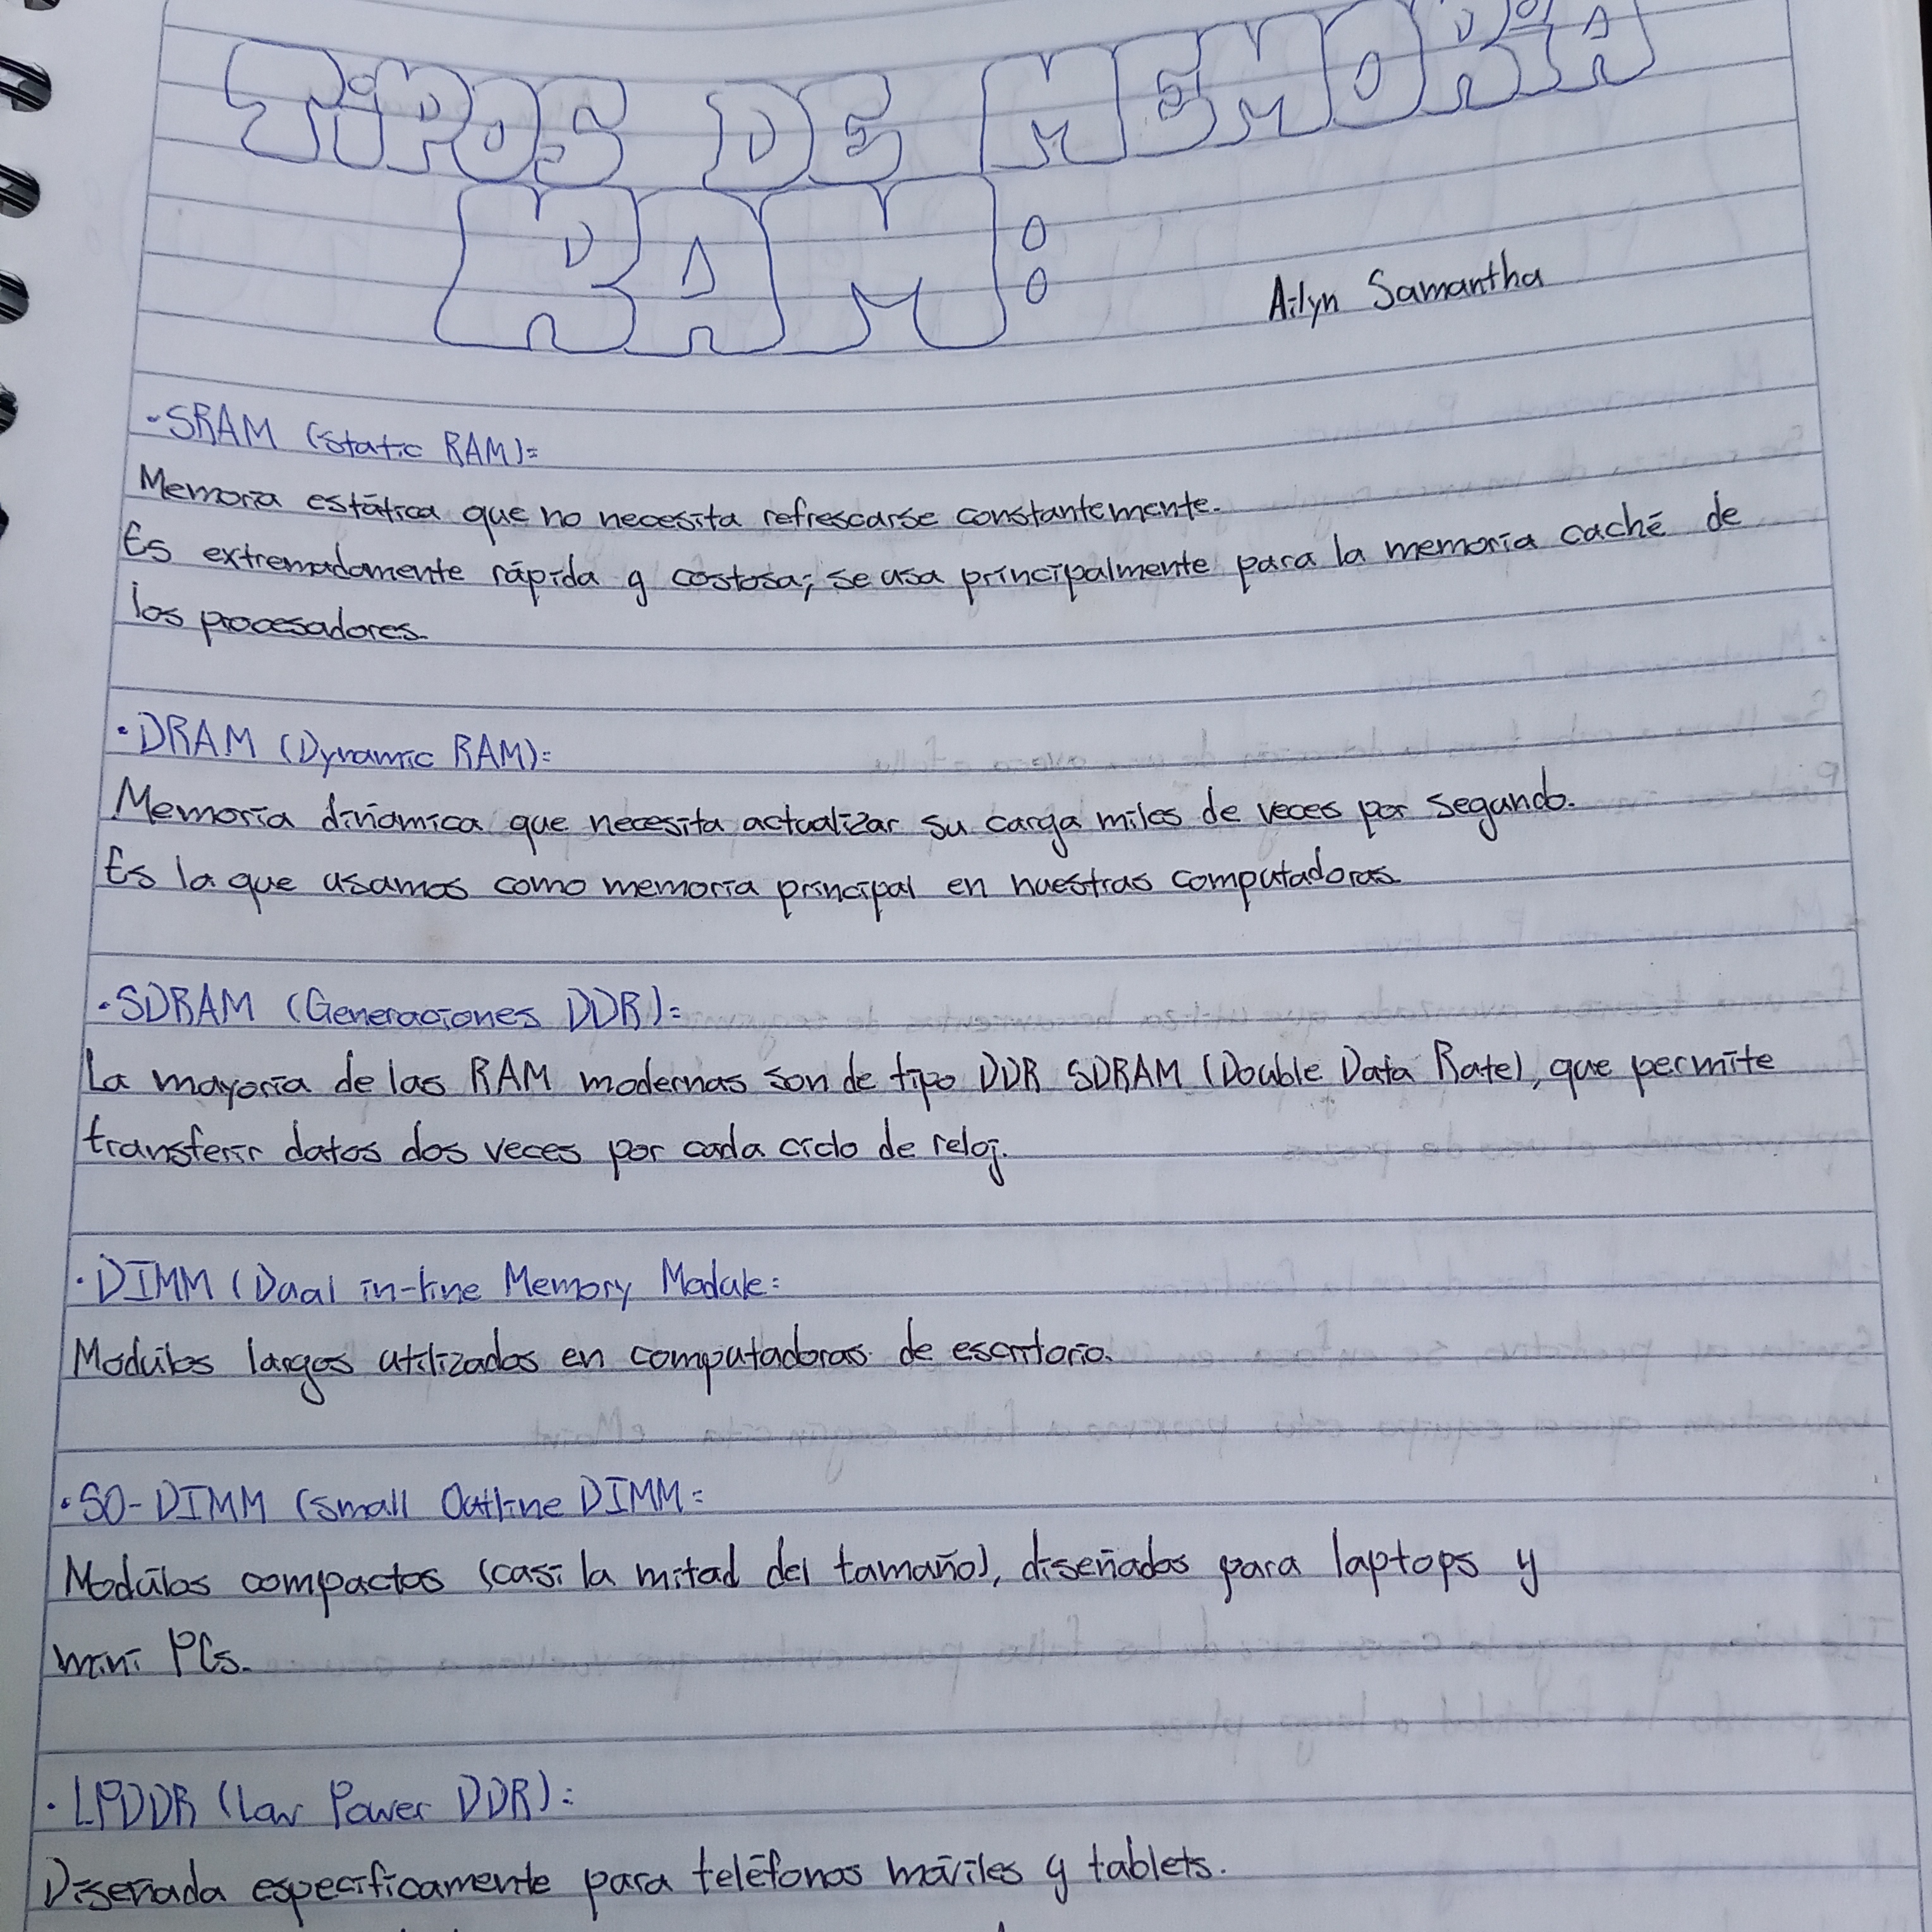 TiPOS DE MEMORiA
RAM:
Ailyn Samantha
·SRAM (Static RAM):
Memoria estática que no necesita refrescarse constantemente.
Es extremadamente rápida y costosa; se usa principalmente para la memoria caché de
los procesadores.
·DRAM (Dynamic RAM):
Memoria dinámica que necesita actualizar su carga miles de veces por segundo.
Es la que usamos como memoria principal en nuestras computadoras.
·SDRAM (Generaciones DDR):
La mayoría de las RAM modernas son de tipo DDR SDRAM (Double Data Rate), que permite
transferir datos dos veces por cada ciclo de reloj.
·DIMM (Dual in-line Memory Module:
Modúlos largos utilizados en computadoras de escritorio.
·SO-DIMM (Small Outline DIMM:
Modúlos compactos (casi la mitad del tamaño), diseñados para laptops y
mini PCs.
·LPDDR (Low Power DDR):
Diseñada especificamente para teléfonos móviles y tablets.